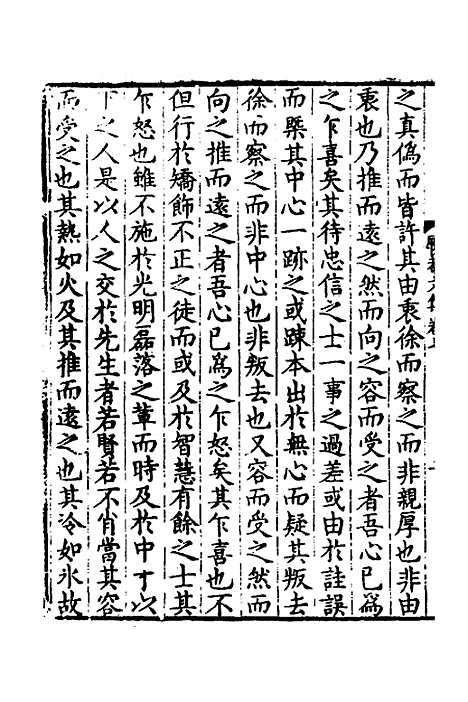 之真僞而皆許其由衷徐而察之而非親厚也非由
衷也乃推而遠之然而向之容而受之者吾心已爲
之乍喜矣其待忠信之士一事之過差或由於詿誤
而槩其中心一跡之或踈本出於無心而疑其叛去
徐而察之而非中心也非叛去也又容而受之然而
向之推而遠之者吾心已爲之乍怒矣其乍喜也不
但行於矯飾不正之徒而或及於智慧有餘之士其
乍怒也雖不施於光明磊落之輩而時及於中才以
下之人是以人之交於先生者若賢若不肖當其容
而受之也其熱如火及其推而遠之也其冷如氷故